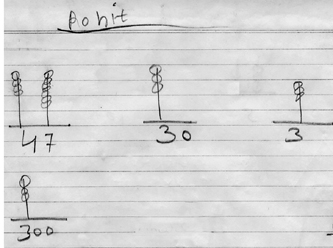 Rohit
47 30 3
300